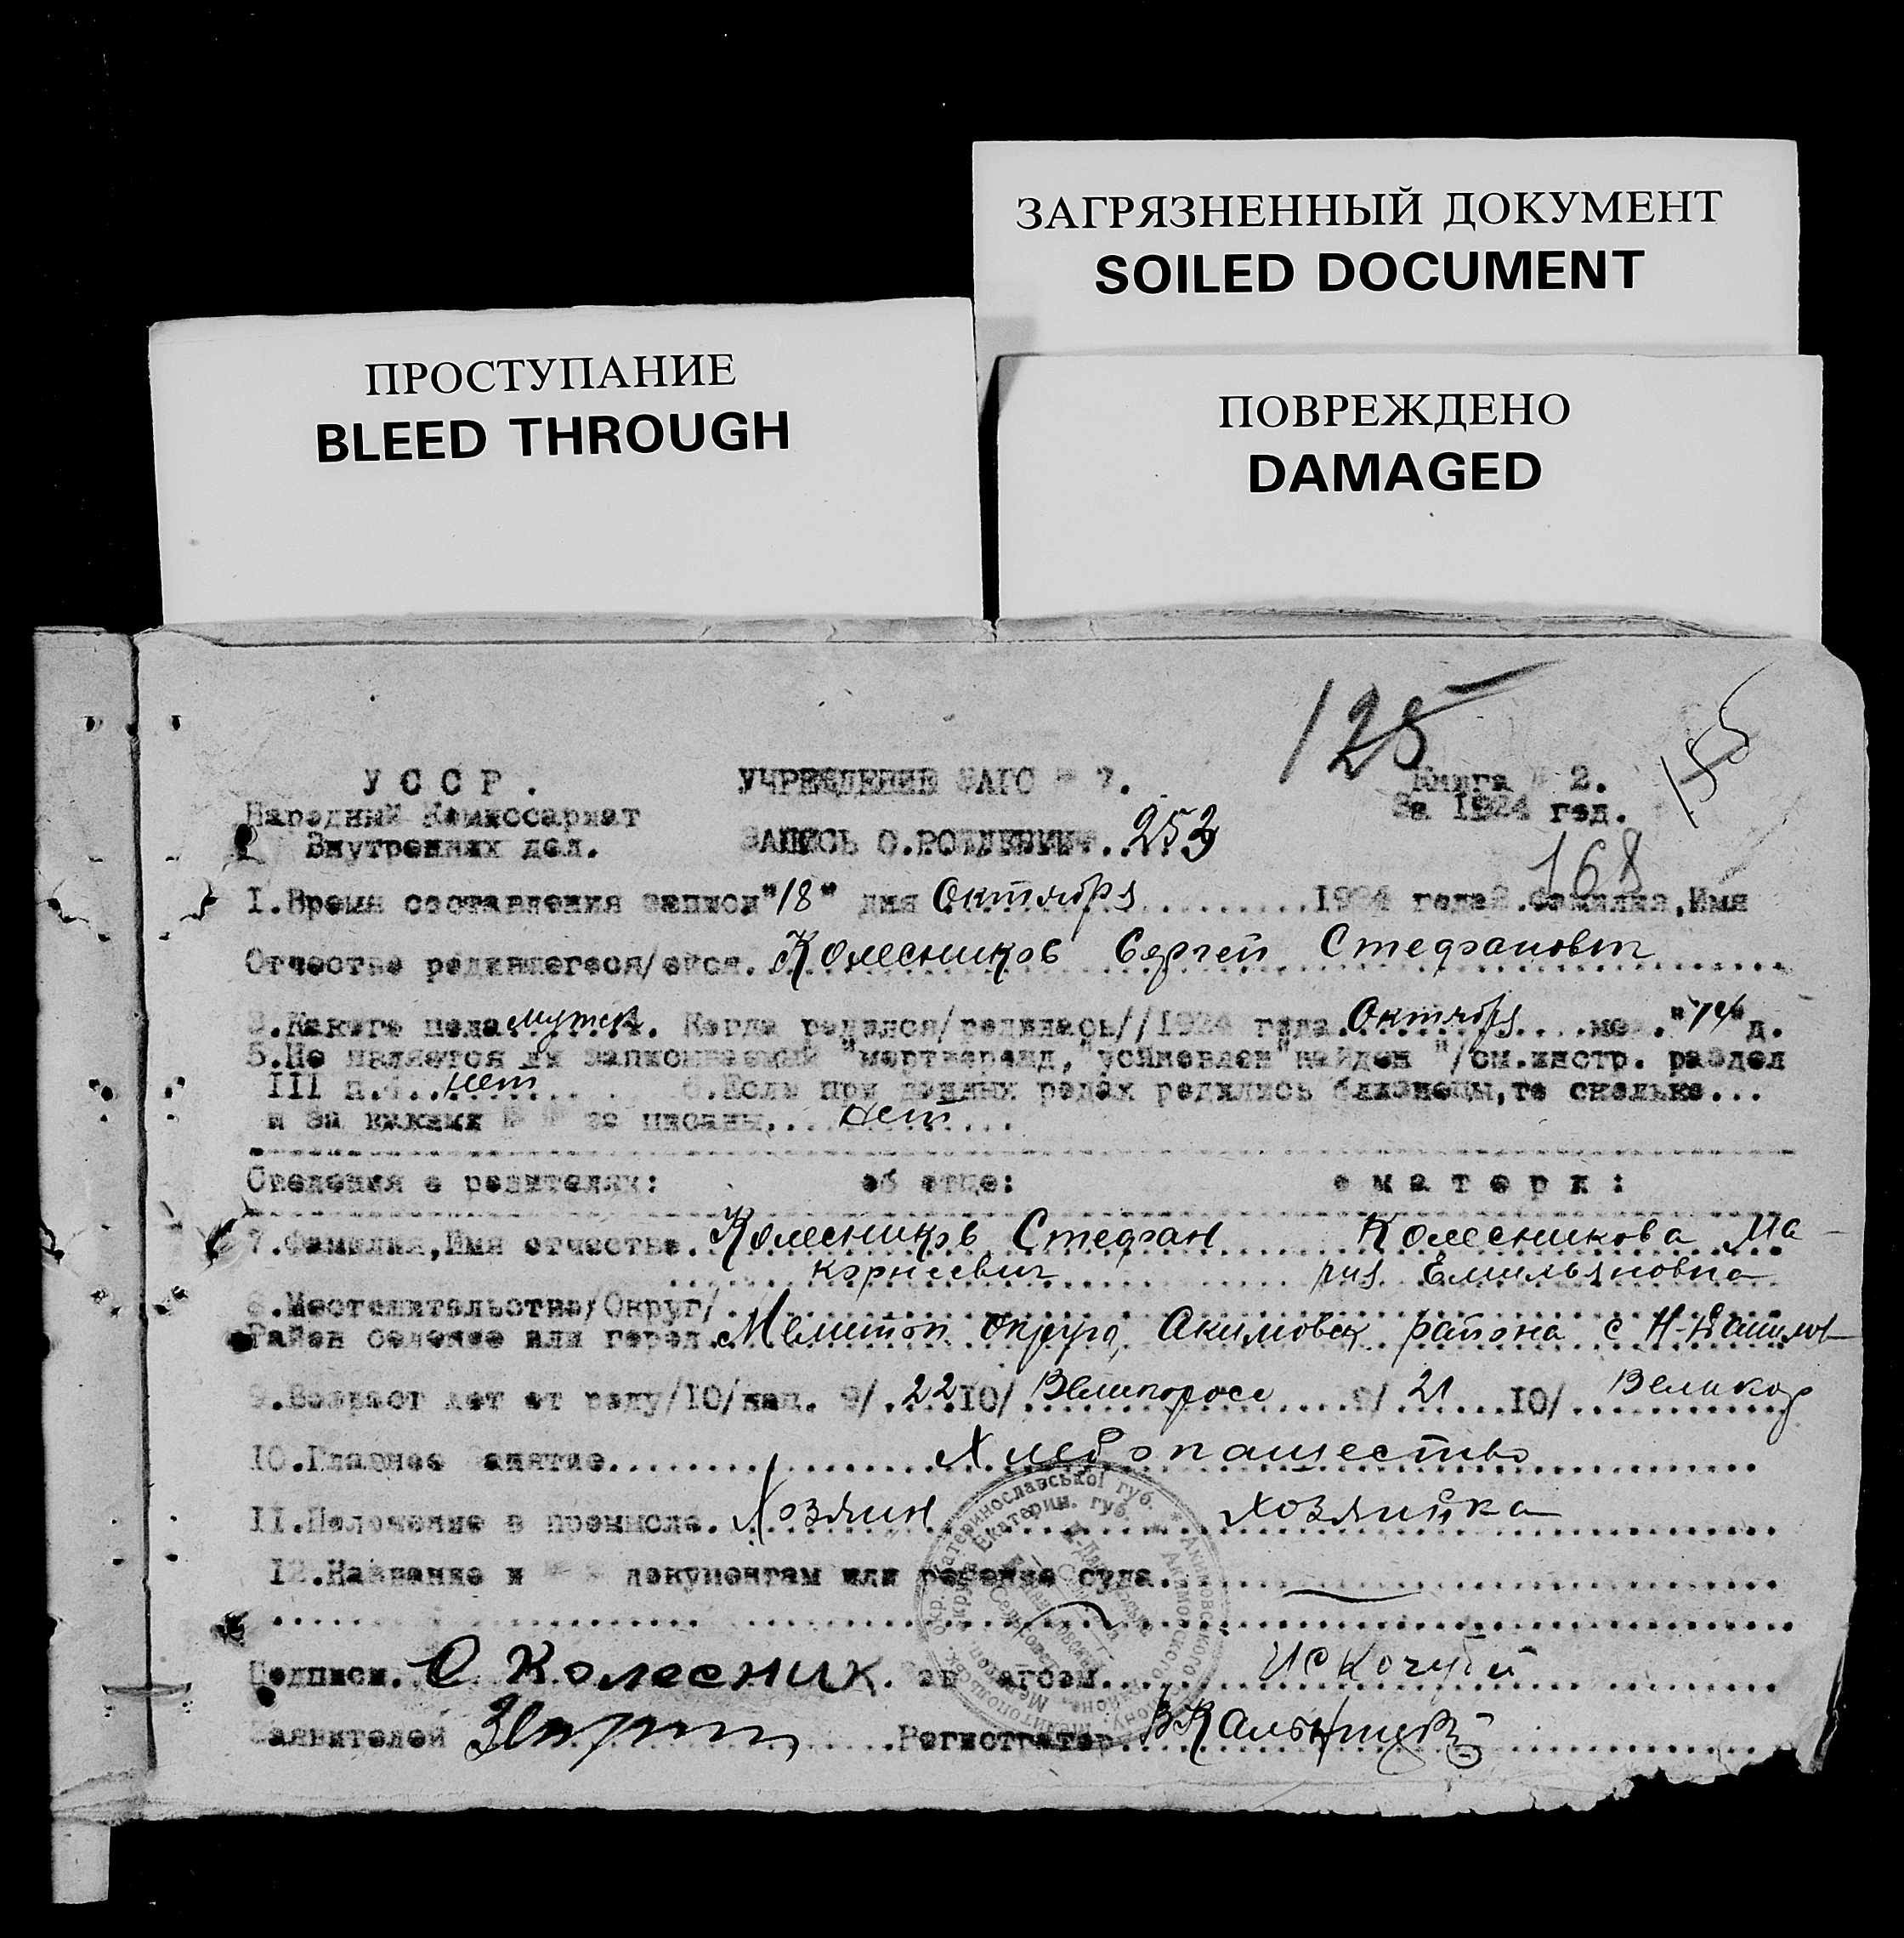 ЗАГРЯЗНЕННЫЙ ДОКУМЕНТ
SOILED DOCUMENT
ПРОСТУПАНИЕ
BLEED THROUGH
ПОВРЕЖДЕНО
DAMAGED
125
155
У С С Р .
УЧРЕЖДЕНИЕ ЗАГС № 7.
Книга № 2.
Народный Комиссариат
За 1924 год.
Внутренних дел.
ЗАПИСЬ О.РОЖДЕНИИ 253
168
I.Время составления записи"18" дня Октября 1924 года 2.Фамилия,Имя
Отчество родившегося/ейся. Колесников Сергей Стефанович
3.Какого пола мужск. Когда родился/родилась//1924 года Октября мес. "14" д.
5.Не является ли записываемый "мертворожд,"усыновлен"найден "/см.инстр. раздел
III п.4. нет 6.Если при данных родах родились близнецы,то сколько...
и за какими № № записаны, нет
Сведения о родителях: об отце: о м а т е р и :
7.Фамилия,Имя отчество. Колесников Стефан Колесникова Ма-
корнеевич рия Емильяновна
8.Местожительство/Округ/
Район селение или город. Мелитоп округа, Акимовск района с Н-Данилов
9.Возраст лет от роду/IO/нац. 9/ 22 IO/ Великоросс 9/ 21 IO/ Великор
IO.Главное занятие Хлебопашество
II.Положение в промысле. Хозяин хозяйка
I2.Название и № № документам или решение суда.
Подписи. С Колесник. Зав загсом
Заявителей Регистратор